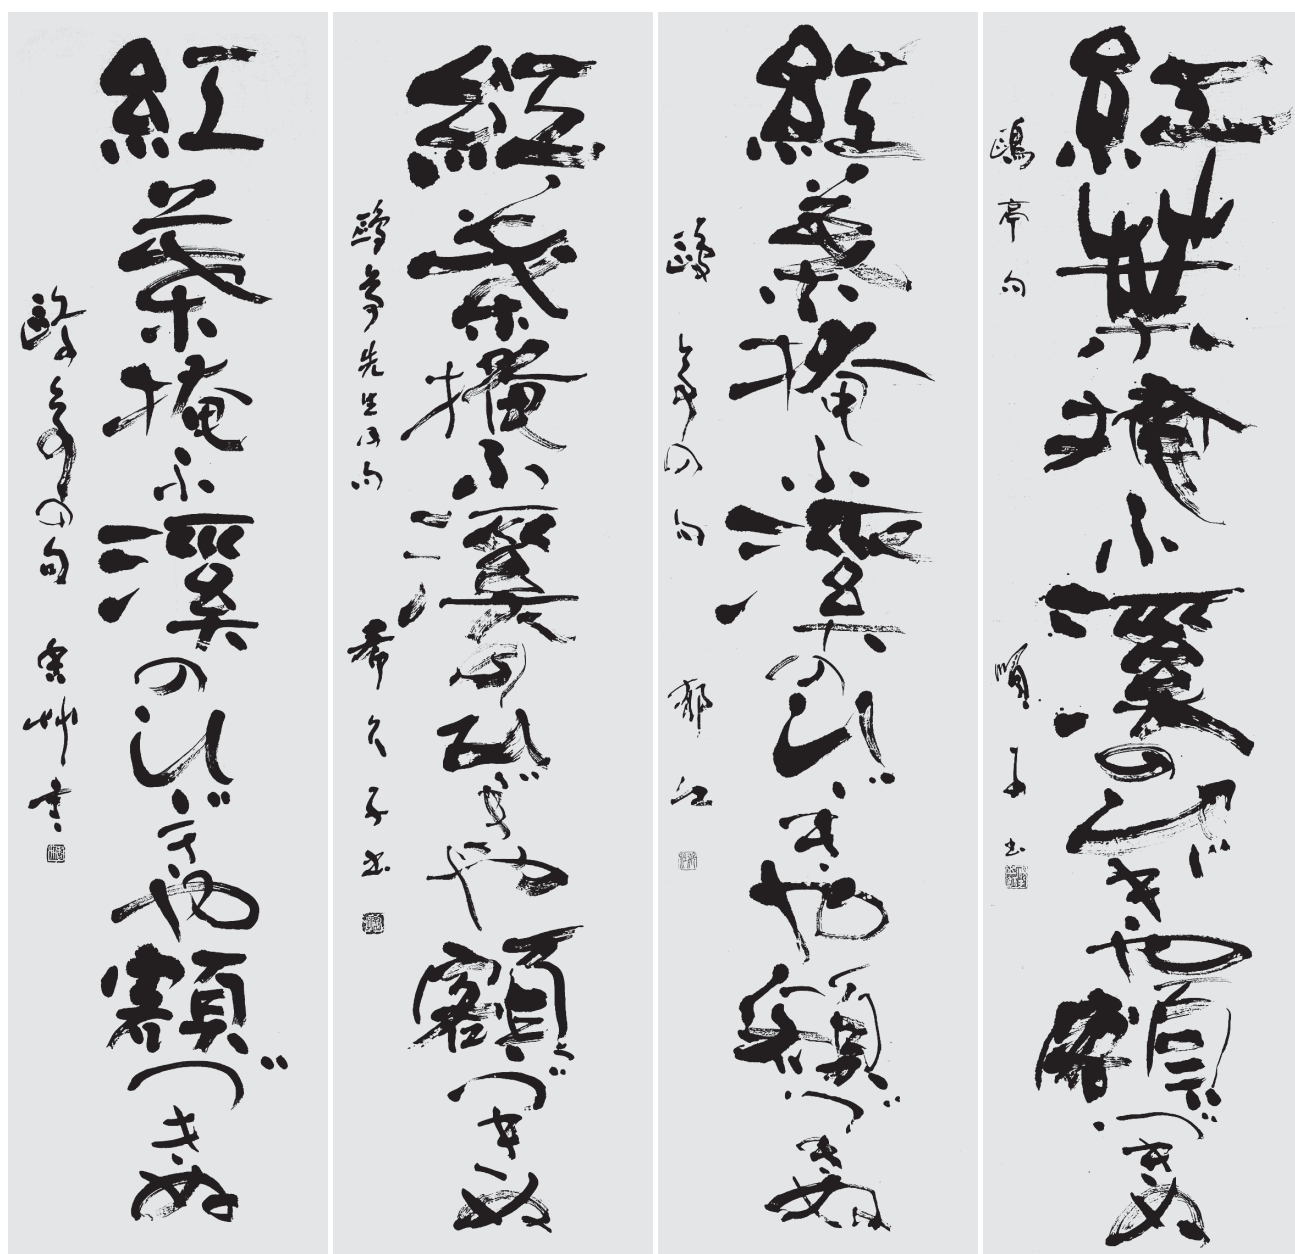 紅葉掩ふ溪のひゞきや額づきぬ
鷗亭句 順子書
紅葉掩ふ溪のひゞきや額づきぬ
鷗亭の句 郁江
紅葉掩ふ溪のひゞきや額づきぬ
鷗亭先生の句 希久子書
紅葉掩ふ溪のひゞきや額づきぬ
鷗亭の句 艸書